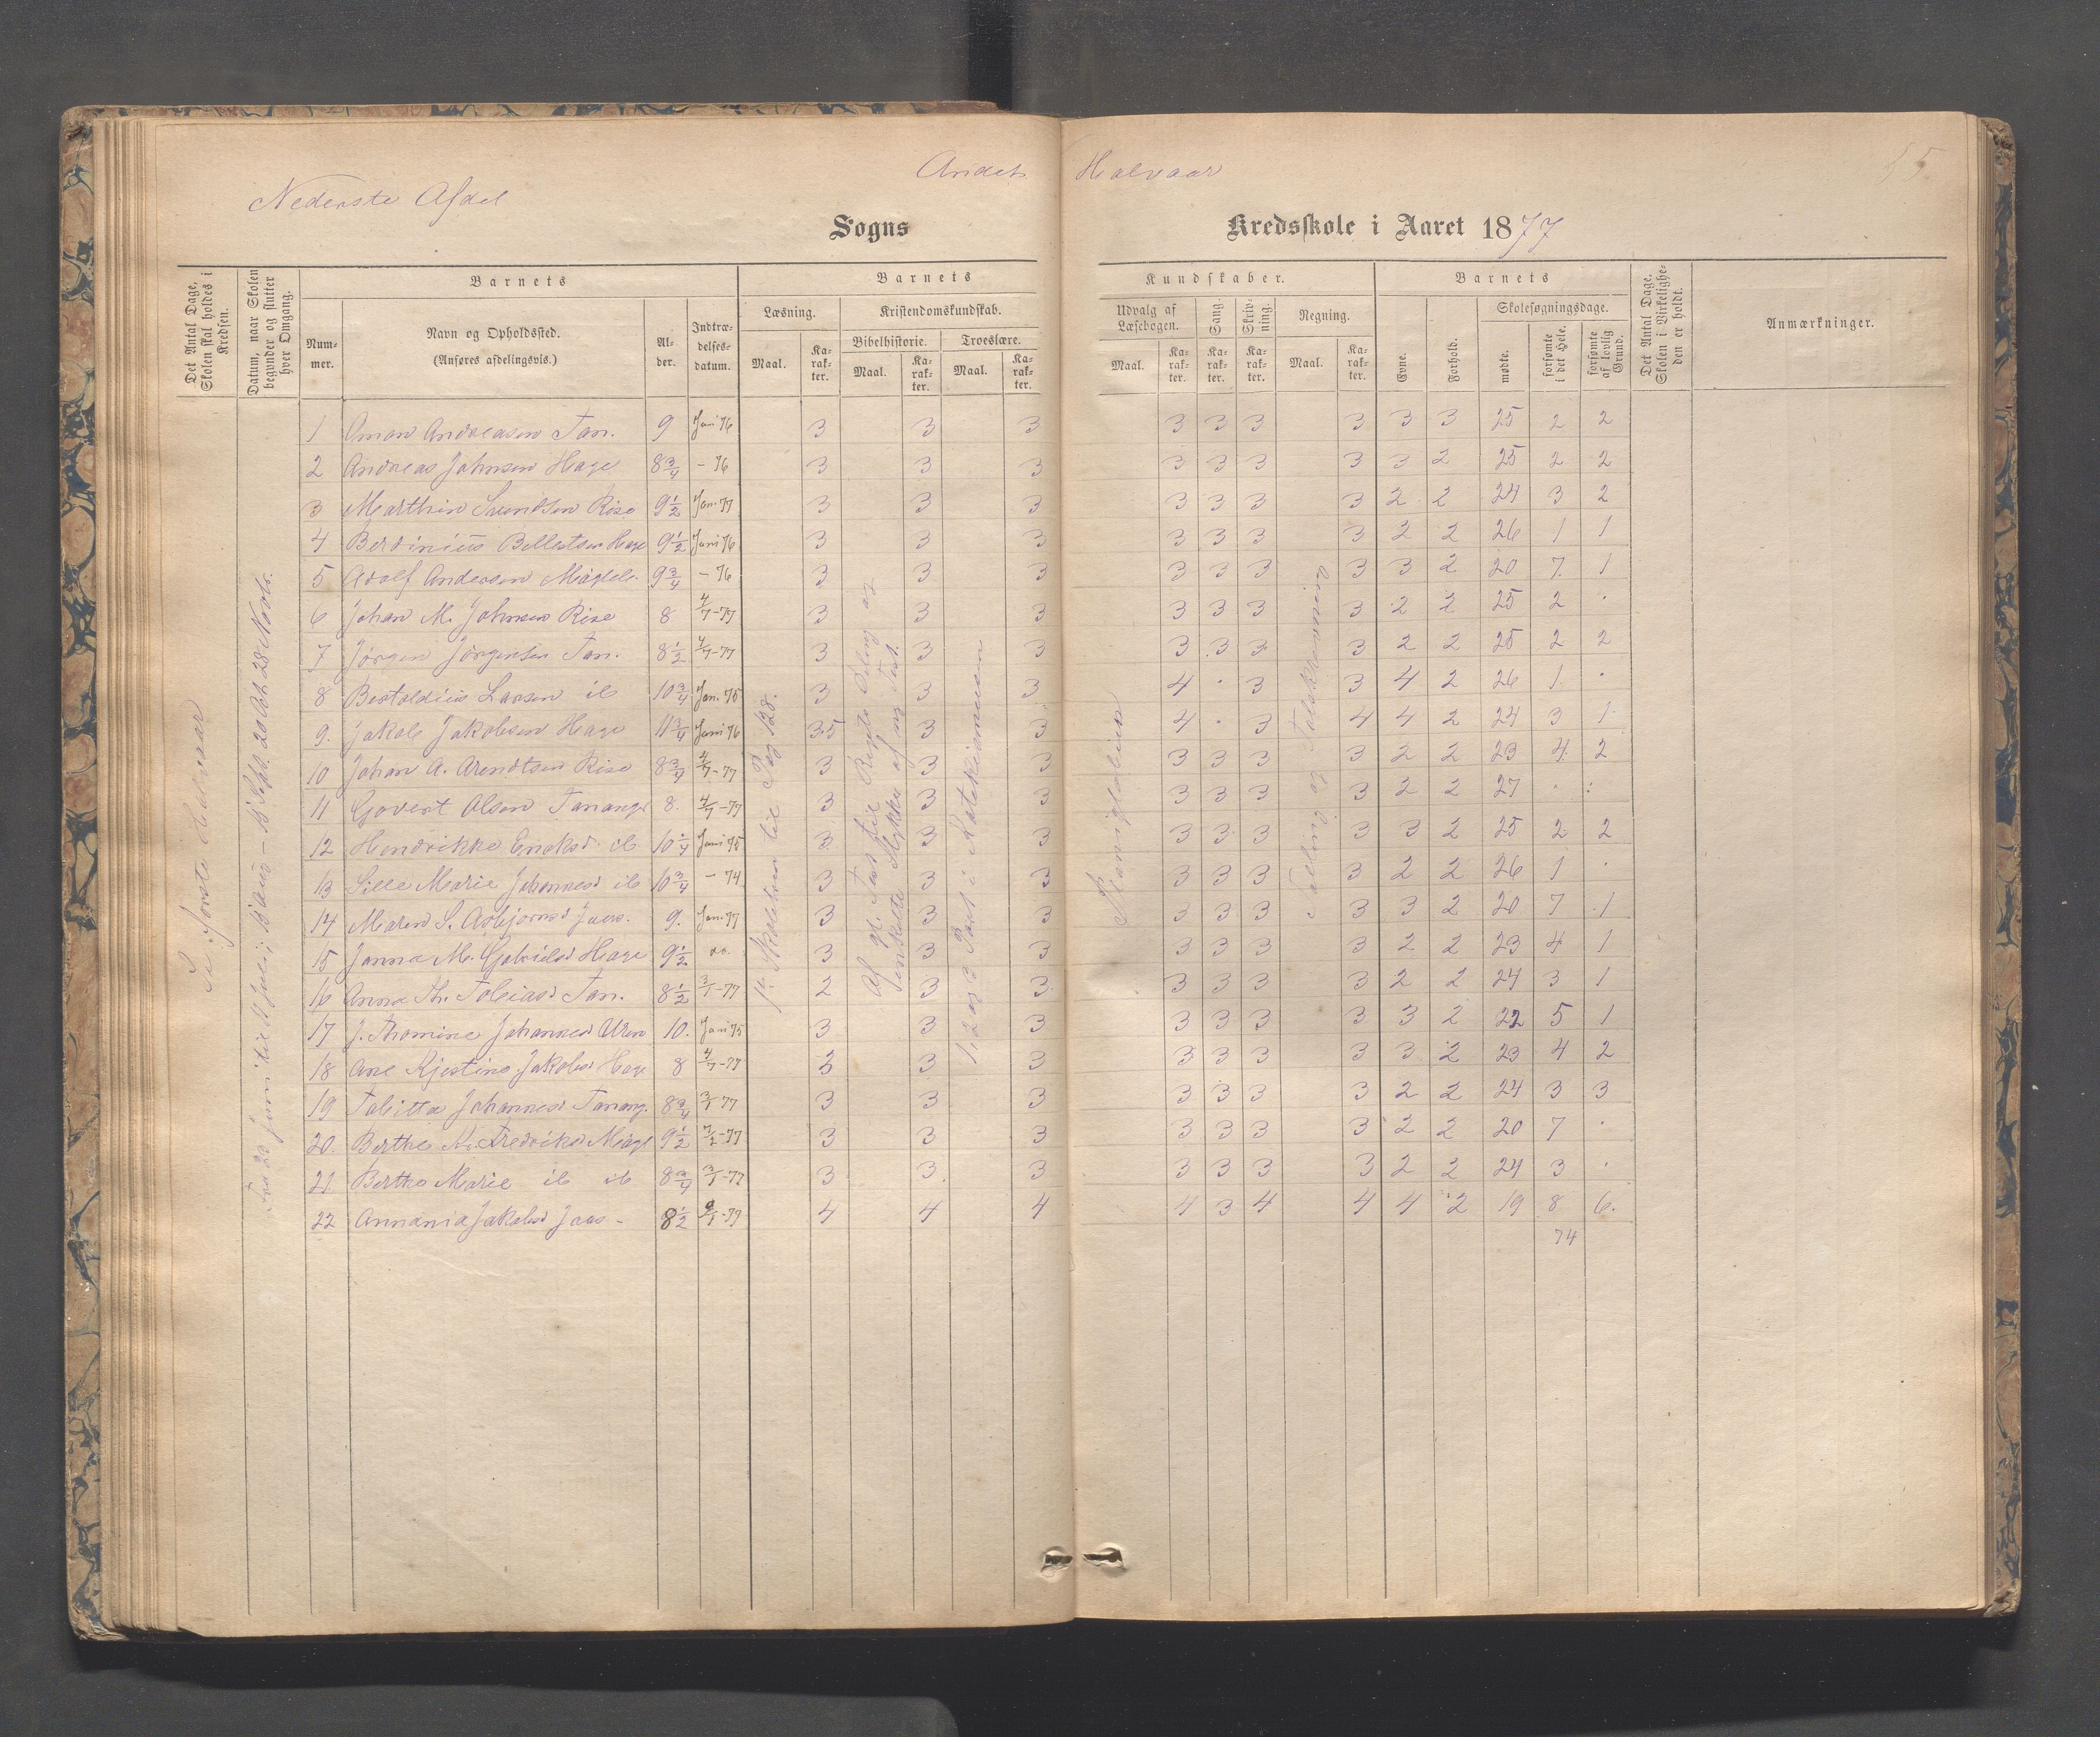 Andet Halvaar
Nederste Afdel
Sogns Kredsskole i Aaret 1877
Det Antal Dage, Skolen skal holdes i Kredsen.
Datum, naar Skolen begynder og slutter hver Omgang.
Barnets
Nummer.
Navn og Opholdssted.
(Anføres afdelingsvis.)
Alder.
Indtrædelsesdatum.
Barnets
Læsning.
Maal.
Karakter.
Kristendomskundskab.
Bibelhistorie.
Maal.
Karakter.
Troeslære.
Maal.
Karakter.
Kundskaber.
Udvalg af Læsebogen.
Maal.
Karakter.
Sang.
Karakter.
Skrivning.
Karakter.
Regning.
Maal.
Karakter.
Barnets
Evne.
Forhold.
Skolesøgningsdage.
mødte.
forsømte i det Hele.
forsømte af lovlig Grund.
Det Antal Dage, Skolen i Virkeligheden er holdt.
Anmærkninger.
Se første Halvaar
1 Andreasen Tan. 9 Juni 76 3 3 3 3 3 3 3 3 3 25 2 2
2 Andreas Johnsen Hage 8 3/4 - 76 3 3 3 3 3 3 3 3 2 25 2 2
3 Marthin Svendsen Rise 9 1/2 Jan. 77 3 3 3 3 3 3 3 2 2 24 3 2
4 Berdinius Hage 9 1/2 Juni 76 3 3 3 3 3 3 3 2 2 26 1 1
5 Adolf Andersen 9 3/4 - 76 3 3 3 3 3 3 3 3 2 20 7 1
6 Johan M. Johnsen Rise 8 4/7-77 3 3 3 3 3 3 3 2 2 25 2 .
7 Jörgen Jörgensen Tan. 8 1/2 4/7-77 3 3 3 3 3 3 3 2 2 25 2 2
8 Bertoldius Larsen ib 10 3/4 Jan. 75 3 3 3 4 . 3 3 4 2 26 1 .
9. Jakob Jakobsen Hage 11 3/4 Juni 76 3.5 3 3 4 . 3 4 4 2 24 3 1
10 Johan A. Arendtsen Rise 8 3/4 4/7-77 3 3 3 3 3 3 3 2 2 23 4 2
11 Govert Olsen Tananger 8. 4/7-77 3 3 3 3 3 3 3 2 2 27 . :
12 Hendrikke ib 10 1/4 Juni 75 3 3 3 3 3 3 3 3 2 25 2 2
13 Sille Marie Johannesd ib 10 3/4 - 74 3 3 3 3 3 3 3 2 2 26 1 .
14 Maren S. Asbjørnsd 9. Jan. 77 3 3 3 3 3 3 3 3 2 20 7 1
15 Janna M. Gabrielsd Hage 9 1/2 do. 3 3 3 3 3 3 3 2 2 23 4 1
16 Anna Th. Tobiasd Tan. 8 1/2 3/1-77 2 3 3 3 3 3 3 2 2 24 3 1
17 J. Thomine Johannesd 10. Jan 75 3 3 3 3 3 3 3 3 2 22 5 1
18 Ane Kjestine Jakobsd Hage 8 4/7-77 3 3 3 3 3 3 3 3 2 23 4 2
19 Tabitta Johannesd Tanang. 8 3/4 3/1 77 3 3 3 3 3 3 3 2 2 24 3 3
20. Berthe Fredriksd 9 1/2 7/2-77 3 3 3 3 3 3 3 2 2 20 7 .
21 Berthe Marie ib ib 8 3/4 3/1-77 3 3 3 3 3 3 3 2 2 24 3 .
22 Annania Jakobsd 8 1/2 9/1-77 4 4 4 4 3 4 4 4 2 19 8 6.
74